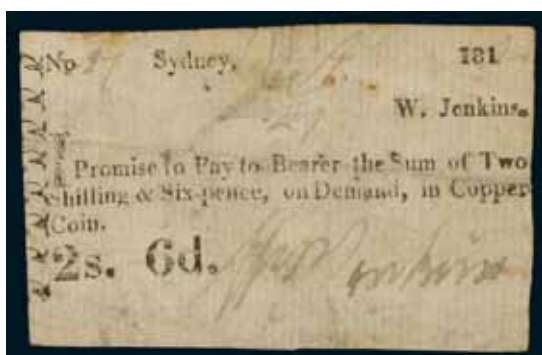 No 27 Sydney, 181
W. Jenkins.
I Promise to Pay to Bearer the Sum of Two
Shilling & Six-pence, on Demand, in Copper
Coin.
2s. 6d. Jenkins